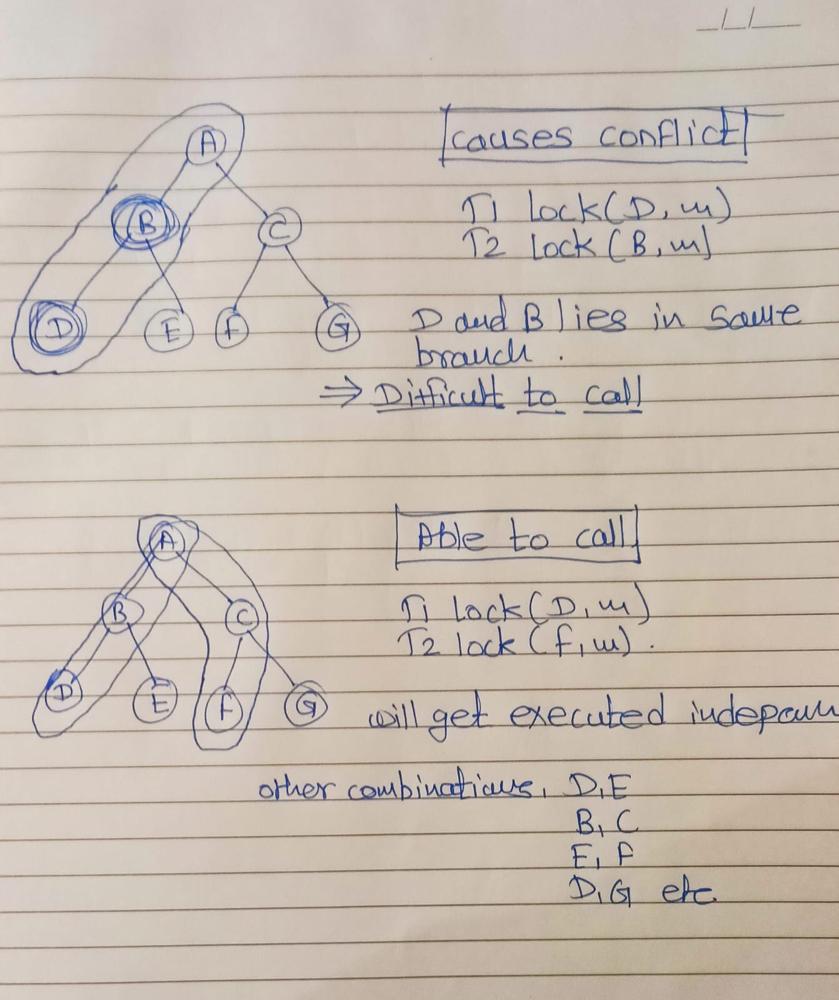 _/_/___
A
B
C
D
E
F
G
causes conflict
T1 lock(D, m)
T2 lock (B, m]
D and B lies in same
branch.
⇒ Difficult to call
A
B
C
D
E
F
G
Able to call
T1 lock(D, m)
T2 lock (f, m).
will get executed
other combinations, D, E
B, C
E, F
D, G etc.